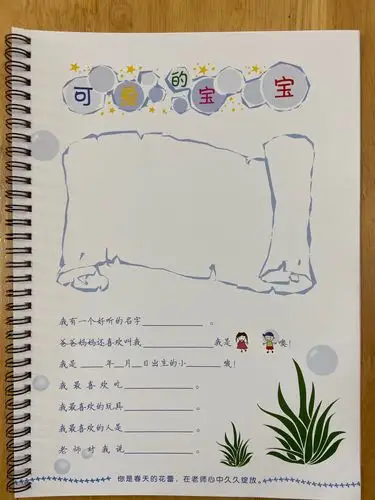 可爱的宝宝
我有一个好听的名字__________。
爸爸妈妈还喜欢叫我____________我是哦！
我是____年__月__日出生的小______哦！
我最喜欢吃____________。
我最喜欢的玩具____________。
我最喜欢的人是____________。
老师对我说____________。
你是春天的花蕾，在老师心中久久绽放。